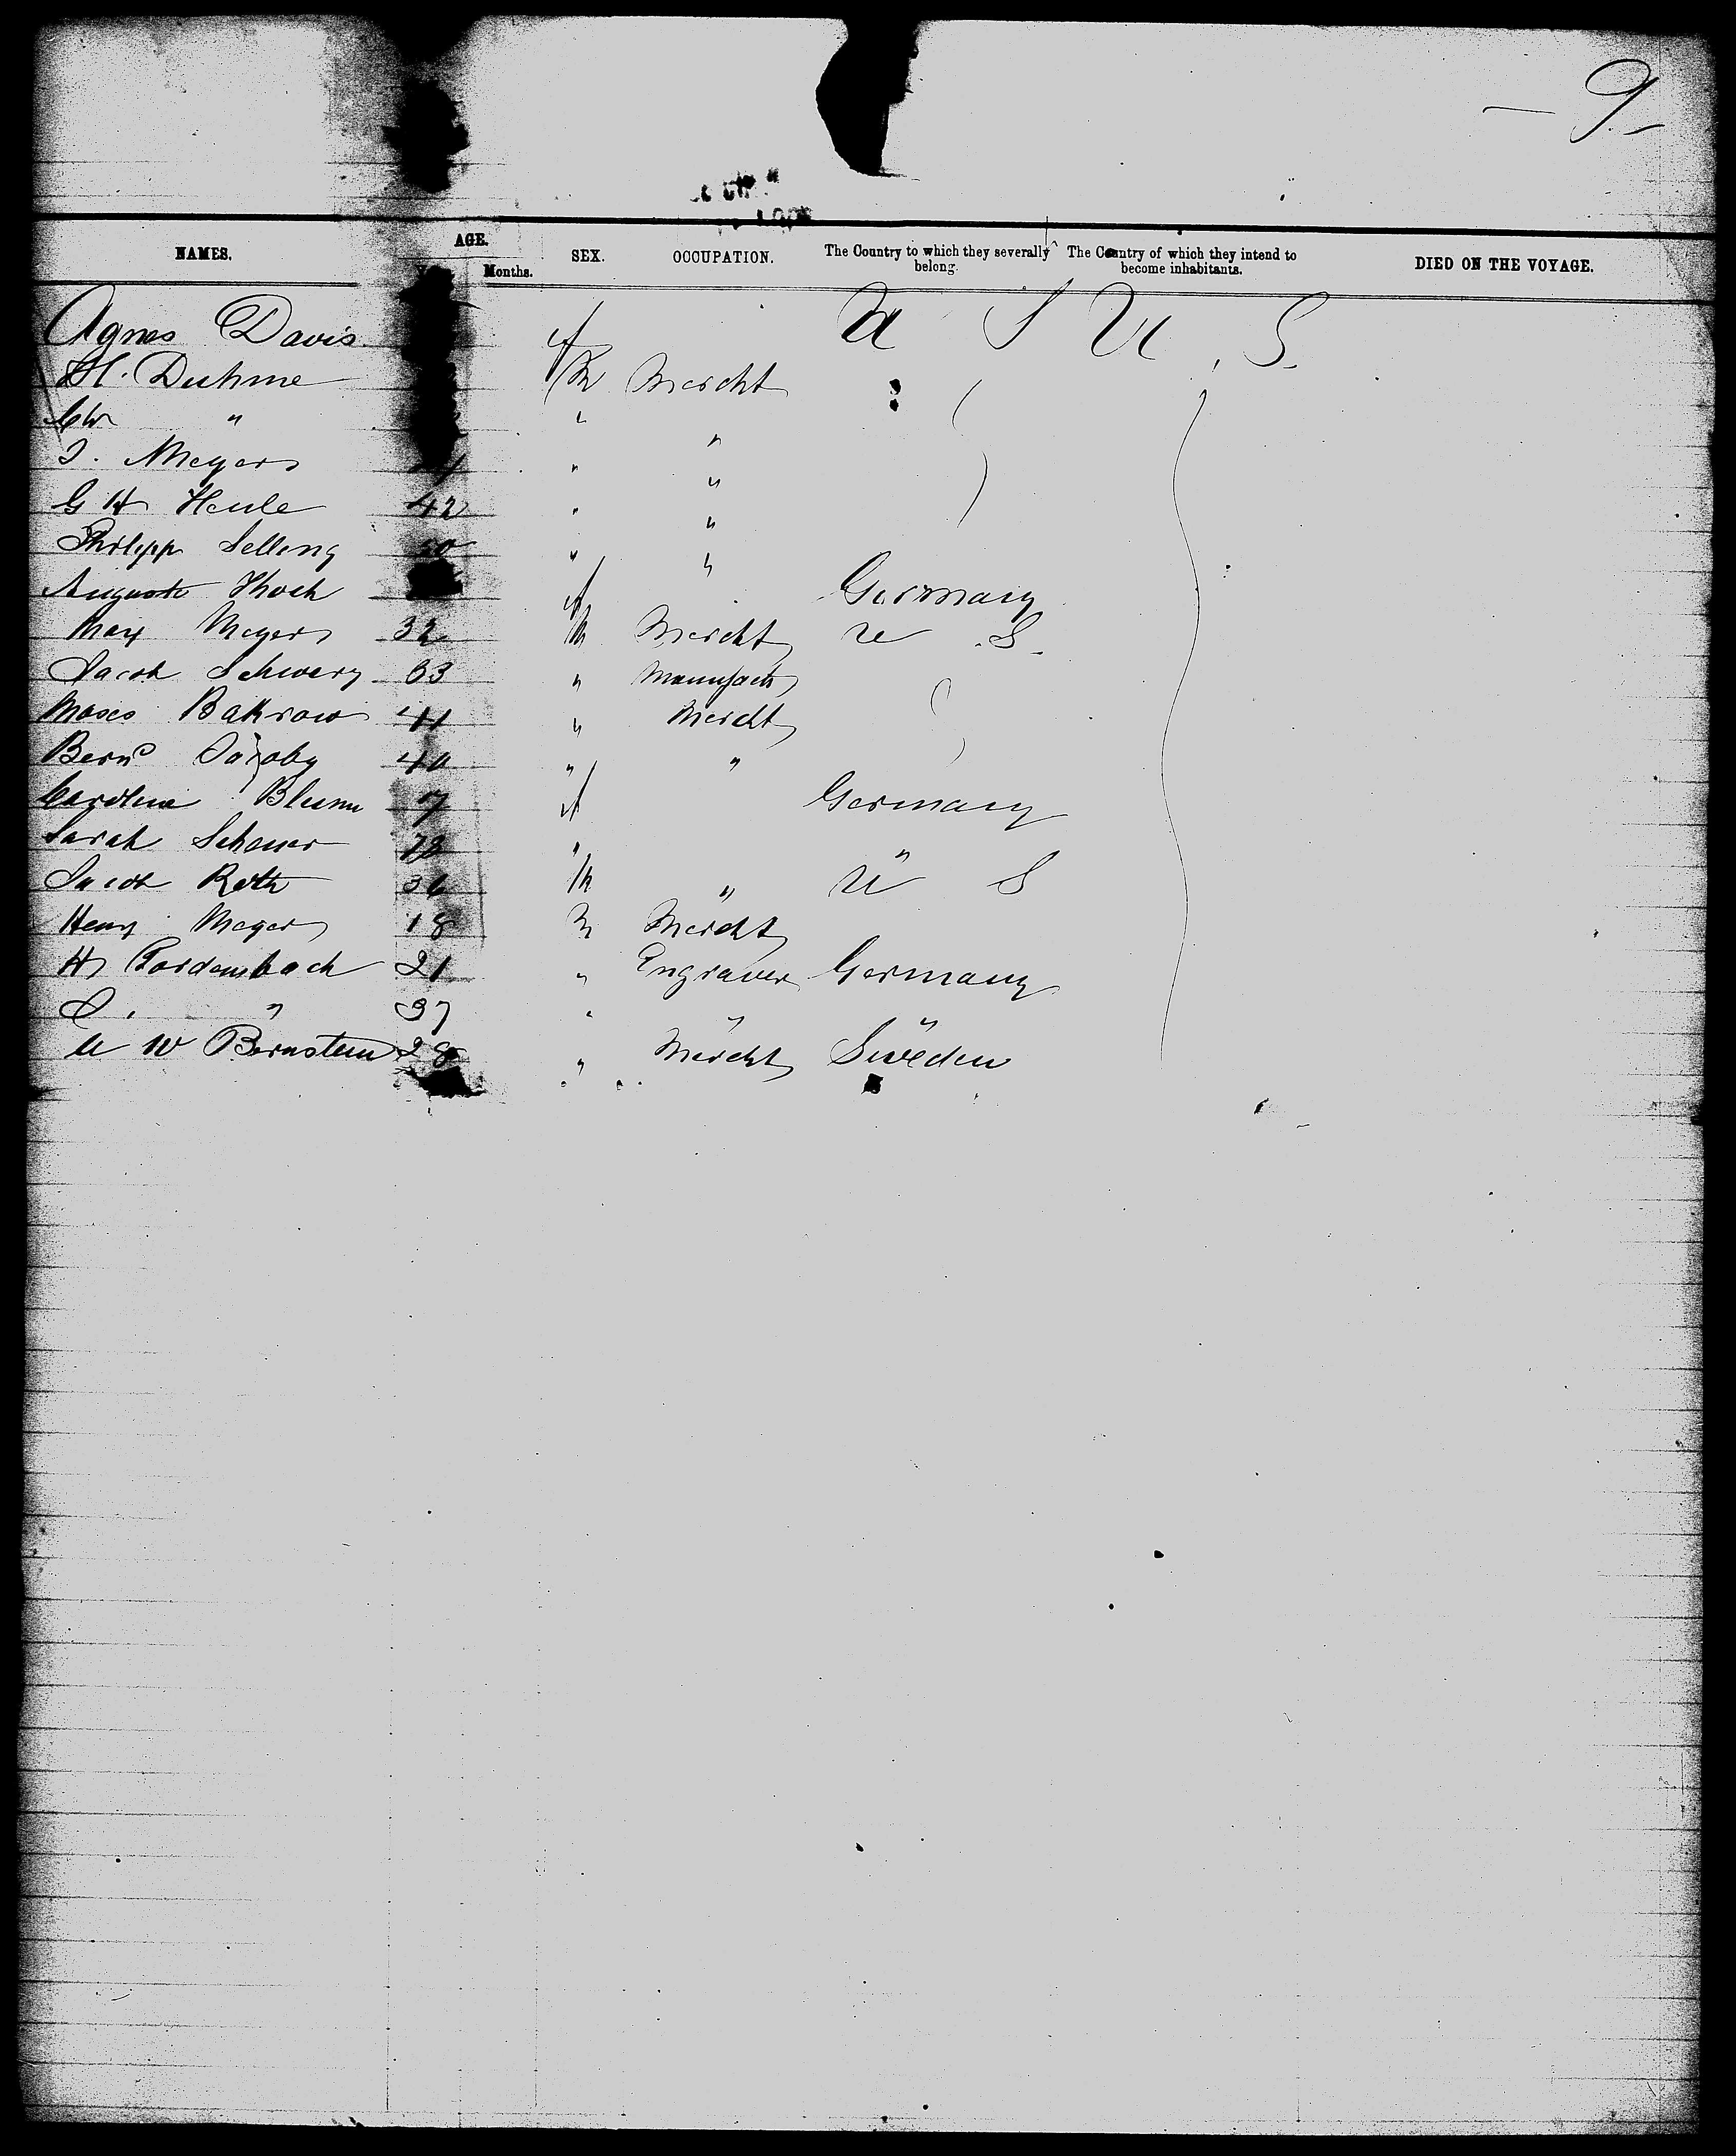 — 9. —
NAMES. AGE. Months. SEX. OCCUPATION. The Country to which they severally belong. The Country of which they intend to become inhabitants. DIED ON THE VOYAGE.
Agnes Davis f U S U. S.
H. Duhme M Mercht
Ch " " "
I. Meyers " "
G H Heule 42 " "
Philipp Selling " "
Auguste Hoch f Germany
Max Meyers 32 M Mercht U. S.
Jacob Schwarz 33 " Manufact
Moses Bakrow 41 " Mercht
Bernd Jacoby 40 " "
Caroline Blum f Germany
Sarah Scheuer " "
Jacob Roth 36 M " U S
Henry Meyer 18 M Mercht
H Fordembach 21 " Engraver Germany
J. " 37 " " "
W Bernstein 28 " Mercht Sweden